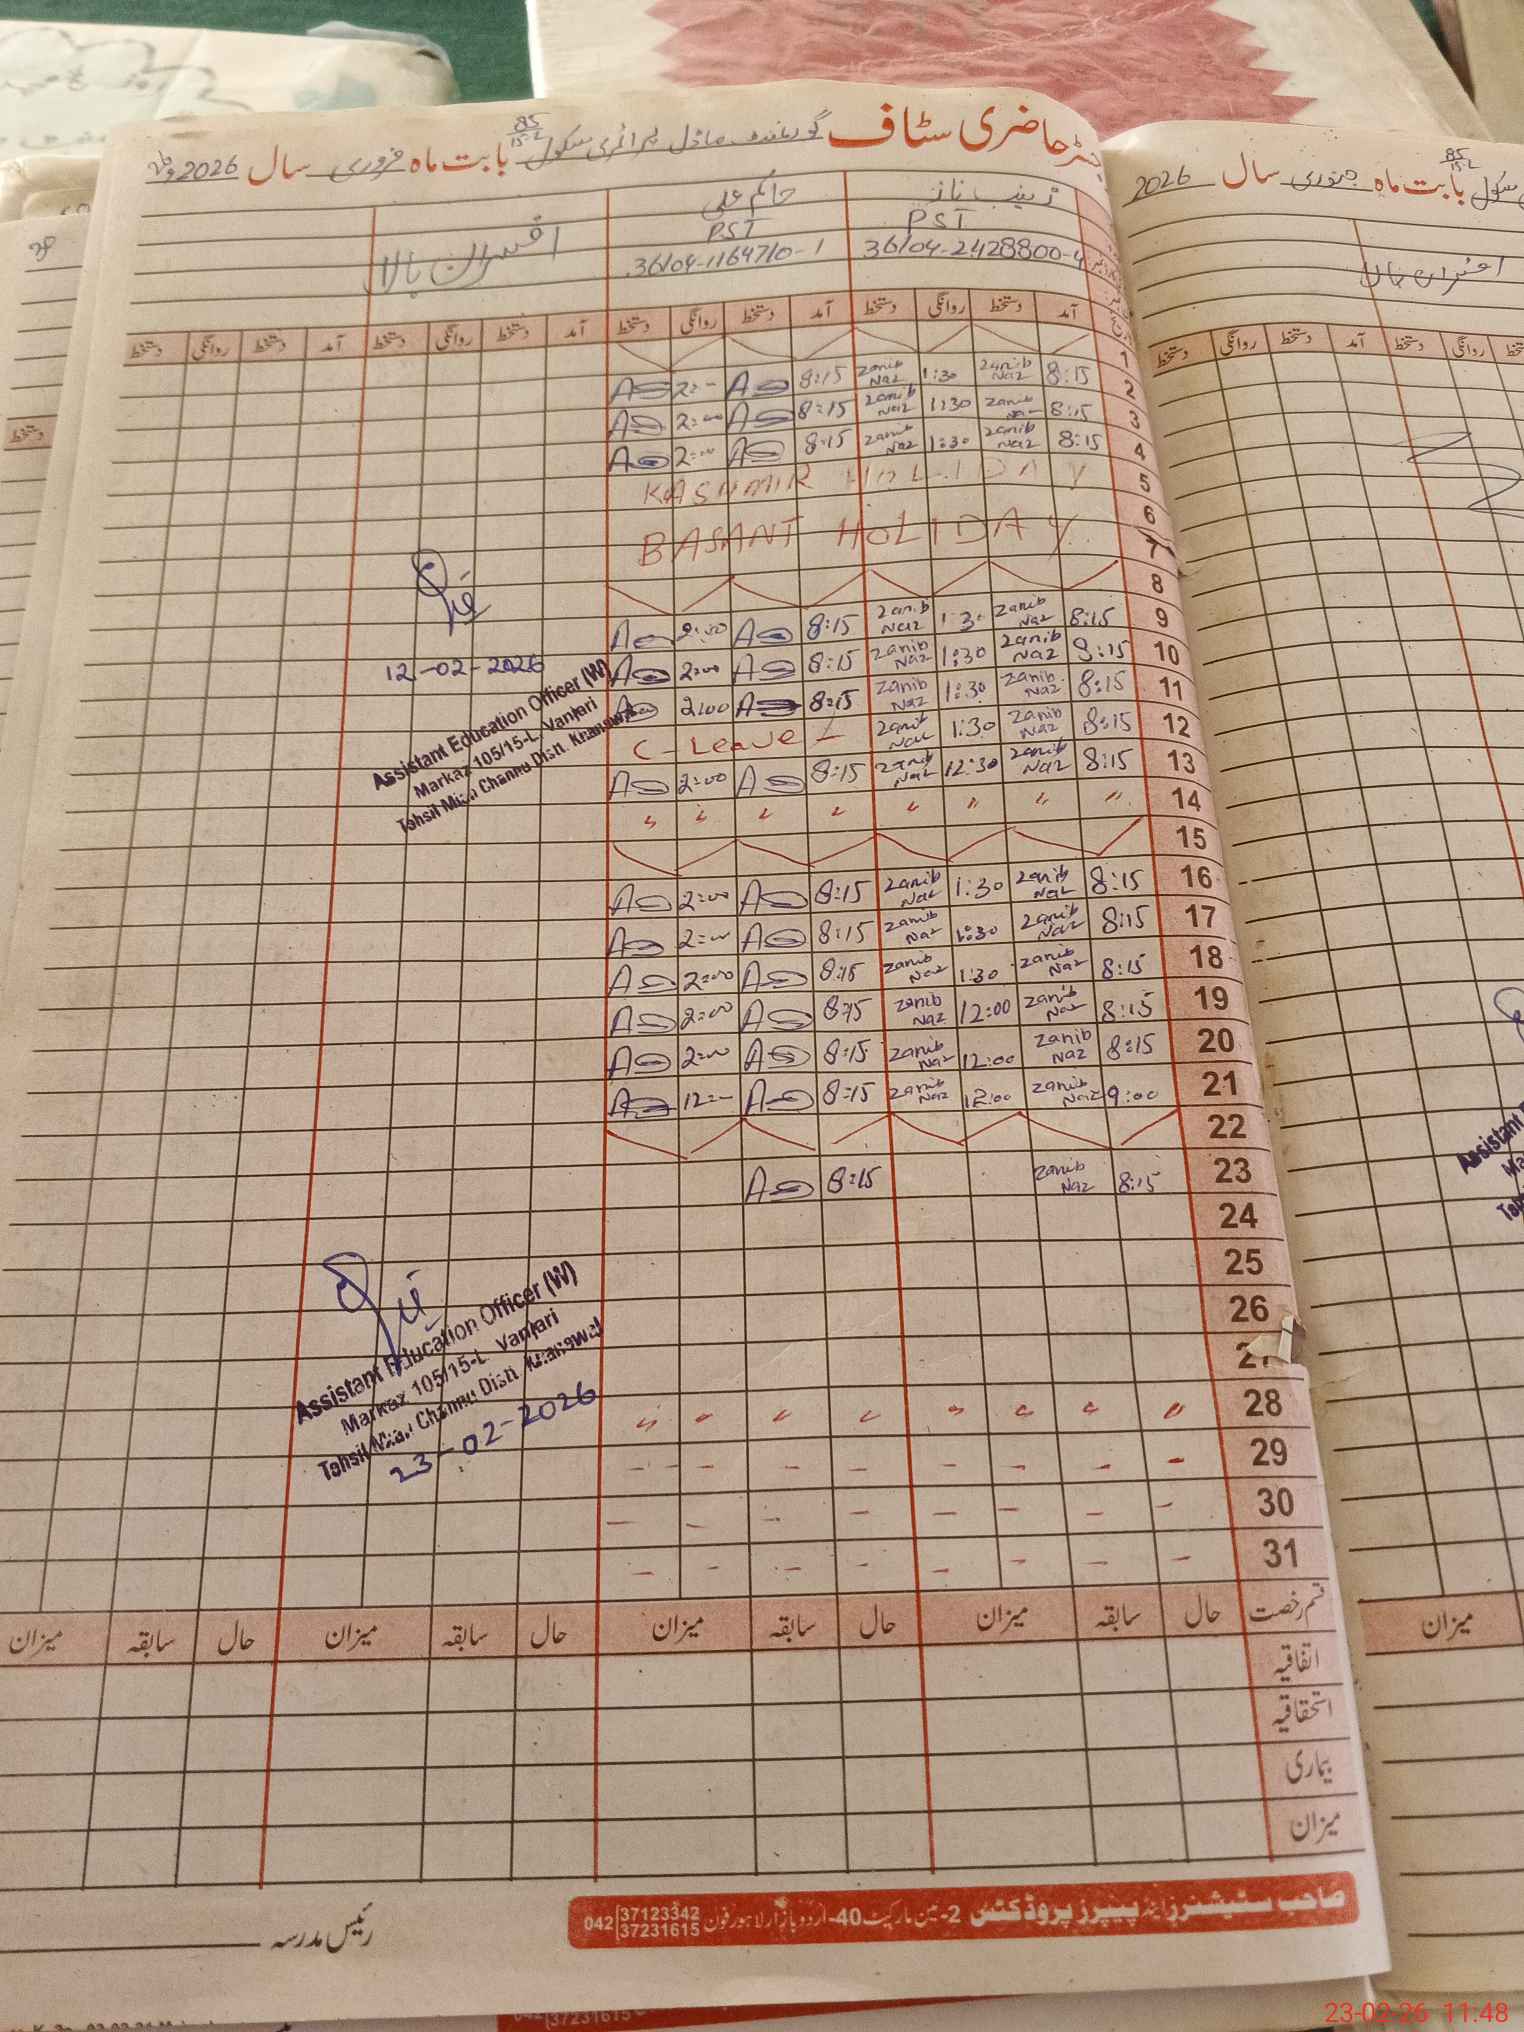 رجسٹر حاضری سٹاف گورنمنٹ ماڈل پرائمری سکول 85/15-L بابت ماہ فروری سال 2026ء
زینب ناز
حاکم علی
افسران بالا
PST
PST
36104-2428800-4
36104-1164710-1
آمد دستخط روانگی دستخط آمد دستخط روانگی دستخط آمد دستخط روانگی دستخط آمد دستخط روانگی دستخط
1
2 8:15 Zanib Naz 1:30 Zanib Naz 8:15 2:-
3 8:15 Zanib Naz 1:30 Zanib Naz 8:15 2:00
4 8:15 Zanib Naz 1:30 Zanib Naz 8:15 2:00
5 KASHMIR HOLIDAY
6
7 BASANT HOLIDAY
8
9 8:15 Zanib Naz 1:30 Zanib Naz 8:15 2:00
10 8:15 Zanib Naz 1:30 Zanib Naz 8:15 2:00
11 8:15 Zanib Naz 1:30 Zanib Naz 8:15 2:00
12 8:15 Zanib Naz 1:30 Zanib Naz C-Leave 1
13 8:15 Zanib Naz 12:30 Zanib Naz 8:15 2:00
14 " " " " " " " "
15
16 8:15 Zanib Naz 1:30 Zanib Naz 8:15 2:00
17 8:15 Zanib Naz 1:30 Zanib Naz 8:15 2:00
18 8:15 Zanib Naz 1:30 Zanib Naz 8:15 2:00
19 8:15 Zanib Naz 12:00 Zanib Naz 8:15 2:00
20 8:15 Zanib Naz 12:00 Zanib Naz 8:15 2:00
21 9:00 Zanib Naz 12:00 Zanib Naz 8:15 12:-
22
23 8:15 Zanib Naz 8:15
24
25
26
27
28 " " " " " " " "
29 - - - - - - - -
30 - - - - - - - -
31 - - - - - - - -
12-02-2026
Assistant Education Officer (W)
Markaz 105/15-L Vanjari
Tehsil Mian Channu Distt. Khanewal
Assistant Education Officer (W)
Markaz 105/15-L Vanjari
Tehsil Mian Channu Distt. Khanewal
23-02-2026
قسم رخصت حال سابقہ میزان حال سابقہ میزان حال سابقہ میزان حال سابقہ میزان
اتفاقیہ
استحقاقیہ
بیماری
میزان
صاحب سٹیشنرز اینڈ پیپرز پروڈکٹس 2-مین مارکیٹ 40-اردو بازار لاہور فون 042 37123342 37231615
رئیس مدرسہ
سکول 85/15-L بابت ماہ جنوری سال 2026
افسران بالا
آمد دستخط روانگی دستخط
میزان
042 37231615
23-02-26 11:48